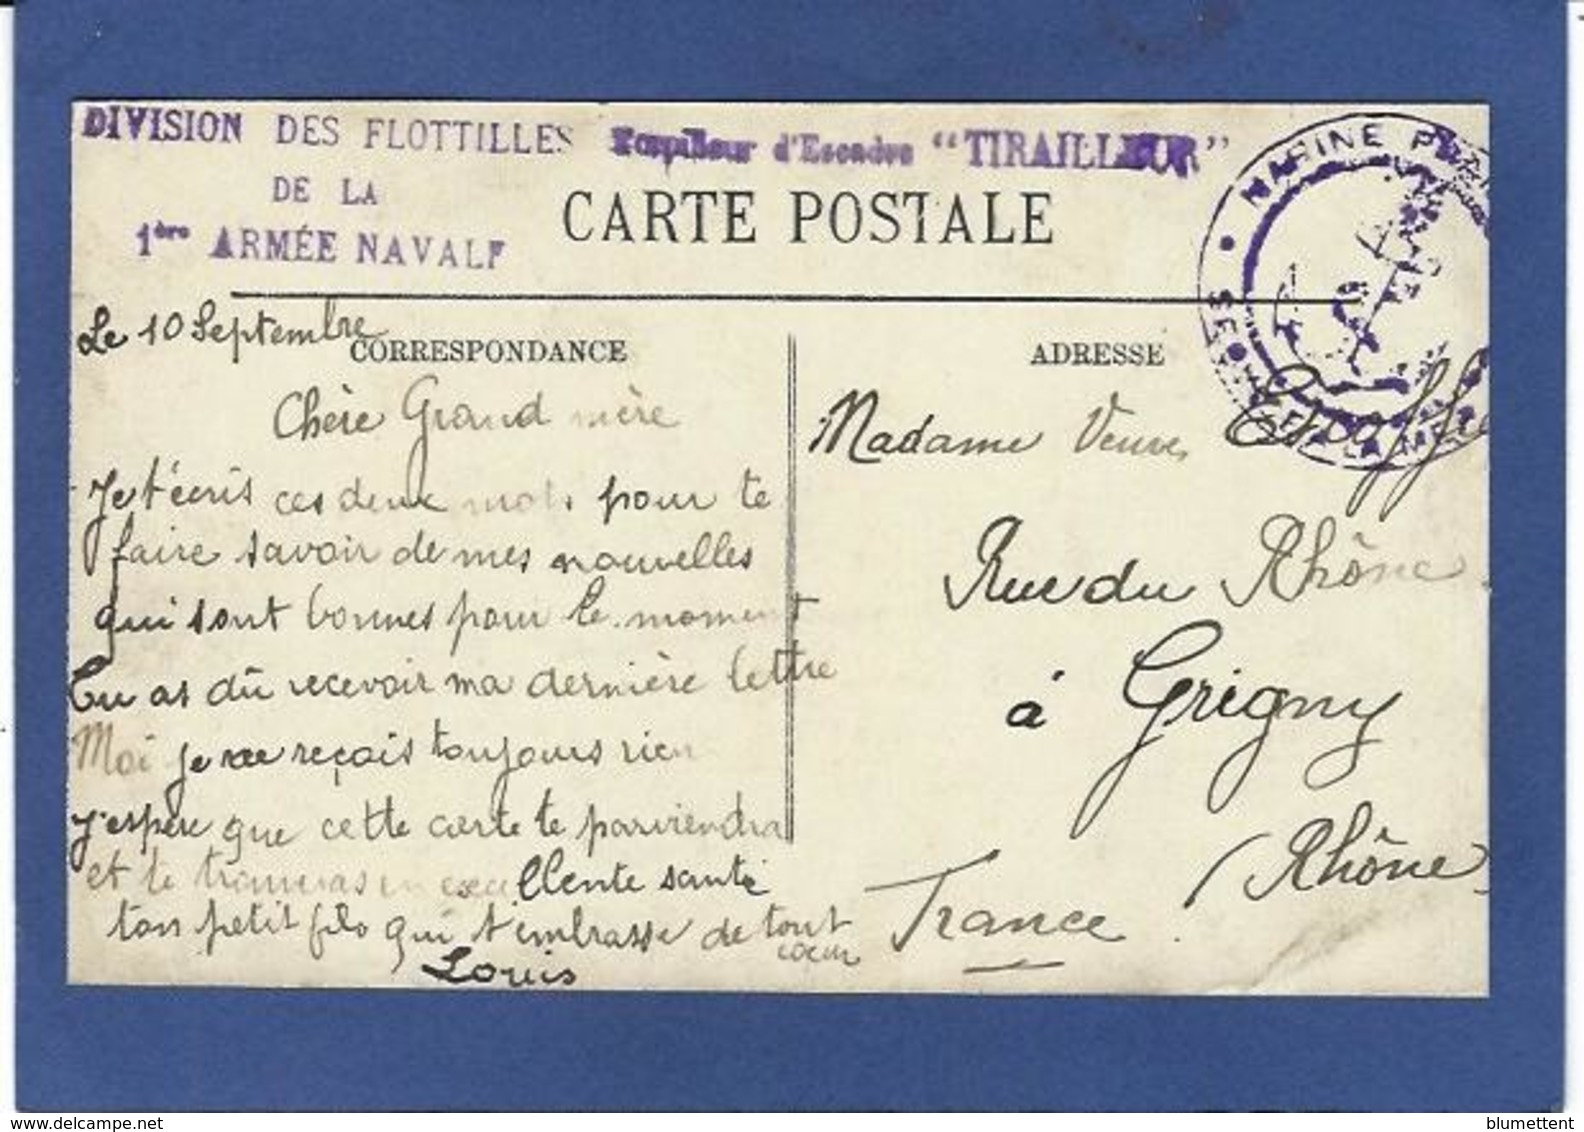 DIVISION DES FLOTTILLES
DE LA
1ère ARMÉE NAVALE
Torpilleur d'Escadre "TIRAILLEUR"
MARINE
SERVICE A LA MER
CARTE POSTALE
Le 10 Septembre
CORRESPONDANCE
Chère Grand mère
Je t'écris ces deux mots pour te
faire savoir de mes nouvelles
qui sont bonnes pour le moment
Tu as dû recevoir ma dernière lettre
Moi je ne reçois toujours rien
J'espère que cette carte te parviendra
et te trouveras en excellente santé
ton petit fils qui t'embrasse de tout
coeur
Louis
ADRESSE
Madame Veuve Escoffie
Rue du Rhône
à Grigny
(Rhône
France
www.delcampe.net
blumettent